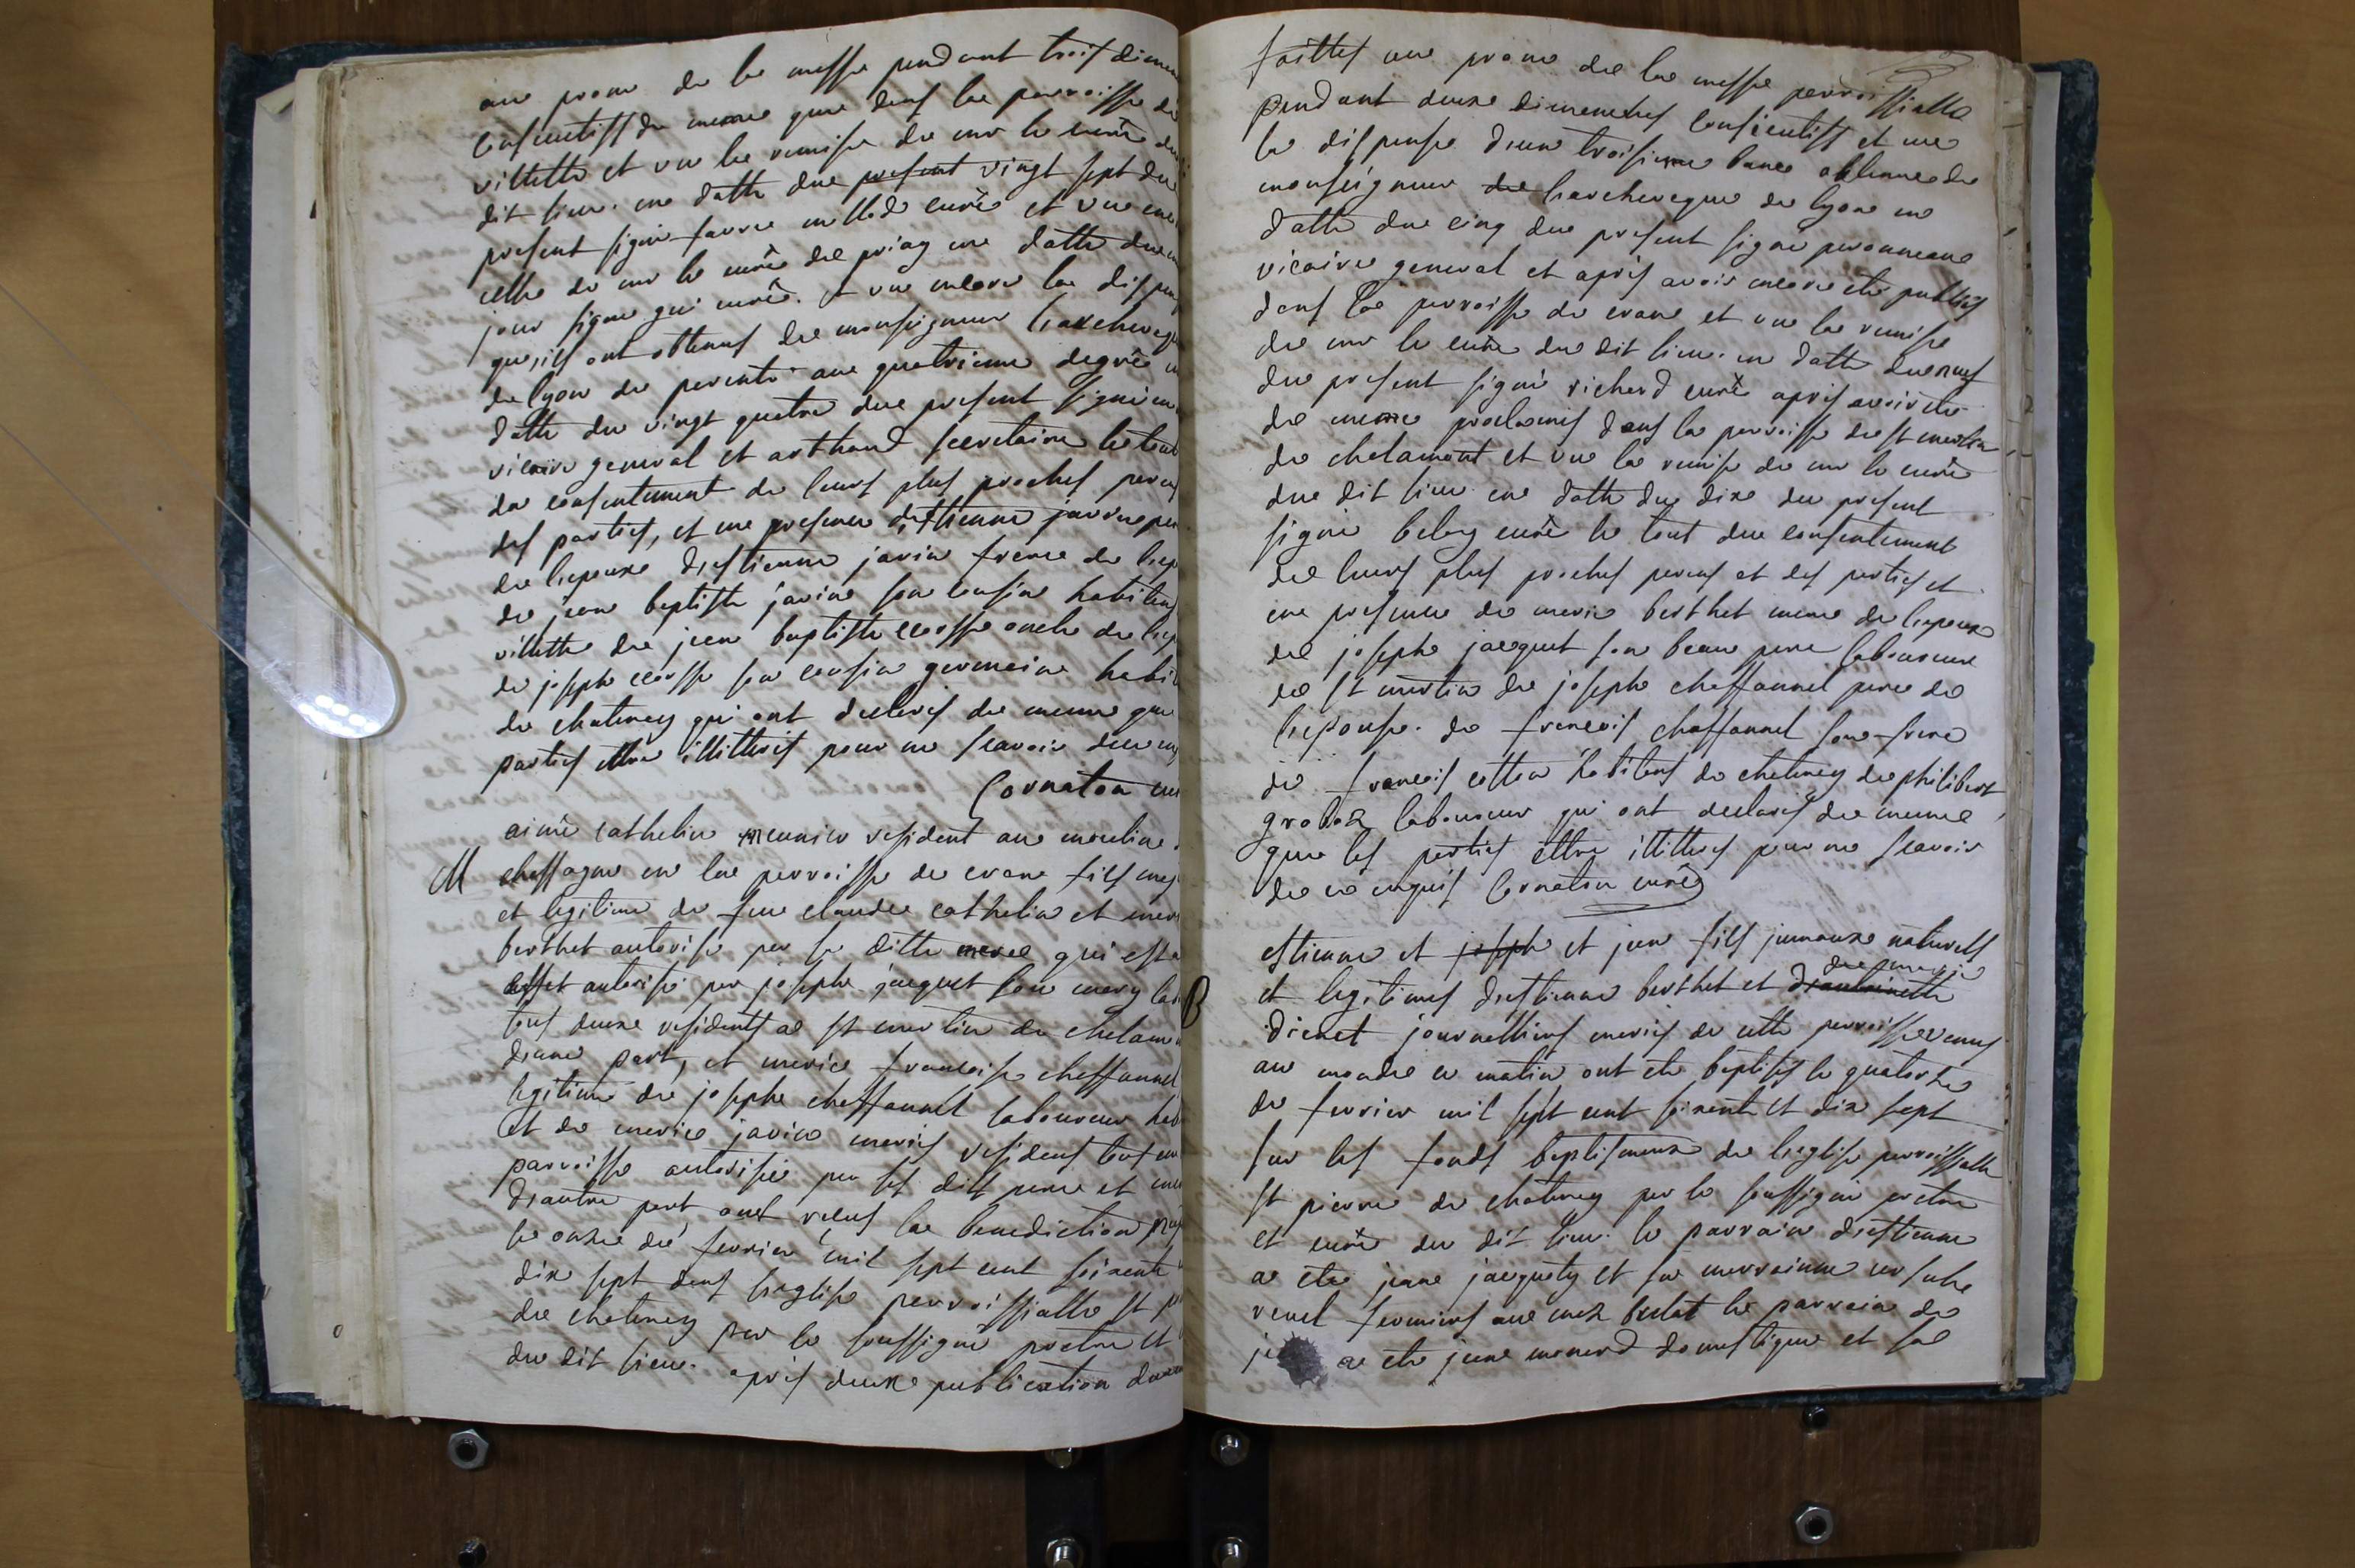 au prone de la messe pendant trois diman
consecutiffs de meme que dans la parroisse de
villette et vue la remise de mr le curé du
dit lieu. en datte du present vingt sept du
present signé favre curé et vue
celle de mr le curé de priay en datte du
jour signé gui curé. et vue encore la dispen
qu'ils ont obtenus de monseigneur l'archeveq
de lyon de parenté au quatrieme degré
datte du vingt quatre du present signé
vicaire general et arthaud secretaire le tout
du consentement de leurs plus proches parens
des parties, et en presence d'estienne
de l'epouse d'estienne javin frere de l'ep
de jean baptiste javin son cousin habitans
villette de jean baptiste cosse oncle de l'ep
de joseph cosse son cousin germain habi
de chatenay qui ont declarés de meme que
parties ettre illitterés pour ne scavoir
Cornaton cur
aimé cathelin meunier resident au moulin
M chassagne en la parroisse de crans fils
et legitime de feu claude cathelin et
berthet autorisé par sa ditte mere qui est a
effet autorisé par joseph jacquet son mary
tous deux residents a st martin de chalam
d'une part, et marie francoise chaffannel
legitime de joseph chaffannel laboureur
et de marie javin mariés residens tous
parroisse autorisée par ses dits pere et
d'autre part ont reçus la benediction
le onze de fevrier mil sept cent soixante
dix sept dans l'eglise parroissialle st
de chatenay par le soussigné pretre et
du dit lieu. après deux publication
faittes au prone de la messe parroissialle
pendant deux dimanches consecutiffs et vue
la dispense d'un troisieme banc obtenue de
monseigneur de l'archeveque de lyon en
datte du cinq du present signé
vicaire general et après avoir encore été publiés
dans la parroisse de crans et vue la remise
de mr le curé du dit lieu. en datte du neuf
du present signé richard curé après avoir été
de meme proclamés dans la parroisse de st martin
de chalamont et vue la remise de mr le curé
du dit lieu en datte du dixe du present
signé belay curé le tout du consentement
de leurs plus proches parens et des parties et
en presence de marie berthet mere de l'epoux
de joseph jacquet son beau pere laboureur
de st martin de joseph chaffannel pere de
l'epouse. de francois chaffannel son frere
de francois cottin habitans de chatenay de philibert
grobaz laboureur qui ont declarés de meme
que les parties ettre illitterés pour ne scavoir
de ce enquis Cornaton curé
estienne et joseph et jean fils jumeaux naturels
du marie
B et legitimes d'estienne berthet et d'antoinette
dichet journalliers mariés de cette parroisse venus
au monde ce matin ont été baptisés le quatorze
de fevrier mil sept cent soixante et dix sept
sur les fonds baptismaux de l'eglise parroissialle
st pierre de chatenay par le soussigné pretre
et curé du dit lieu. le parrain d'estienne
a été jean jacquety et sa marrainne ursule
venet fermiers au mas bulat le parrain de
je a été jean monard domestique et sa